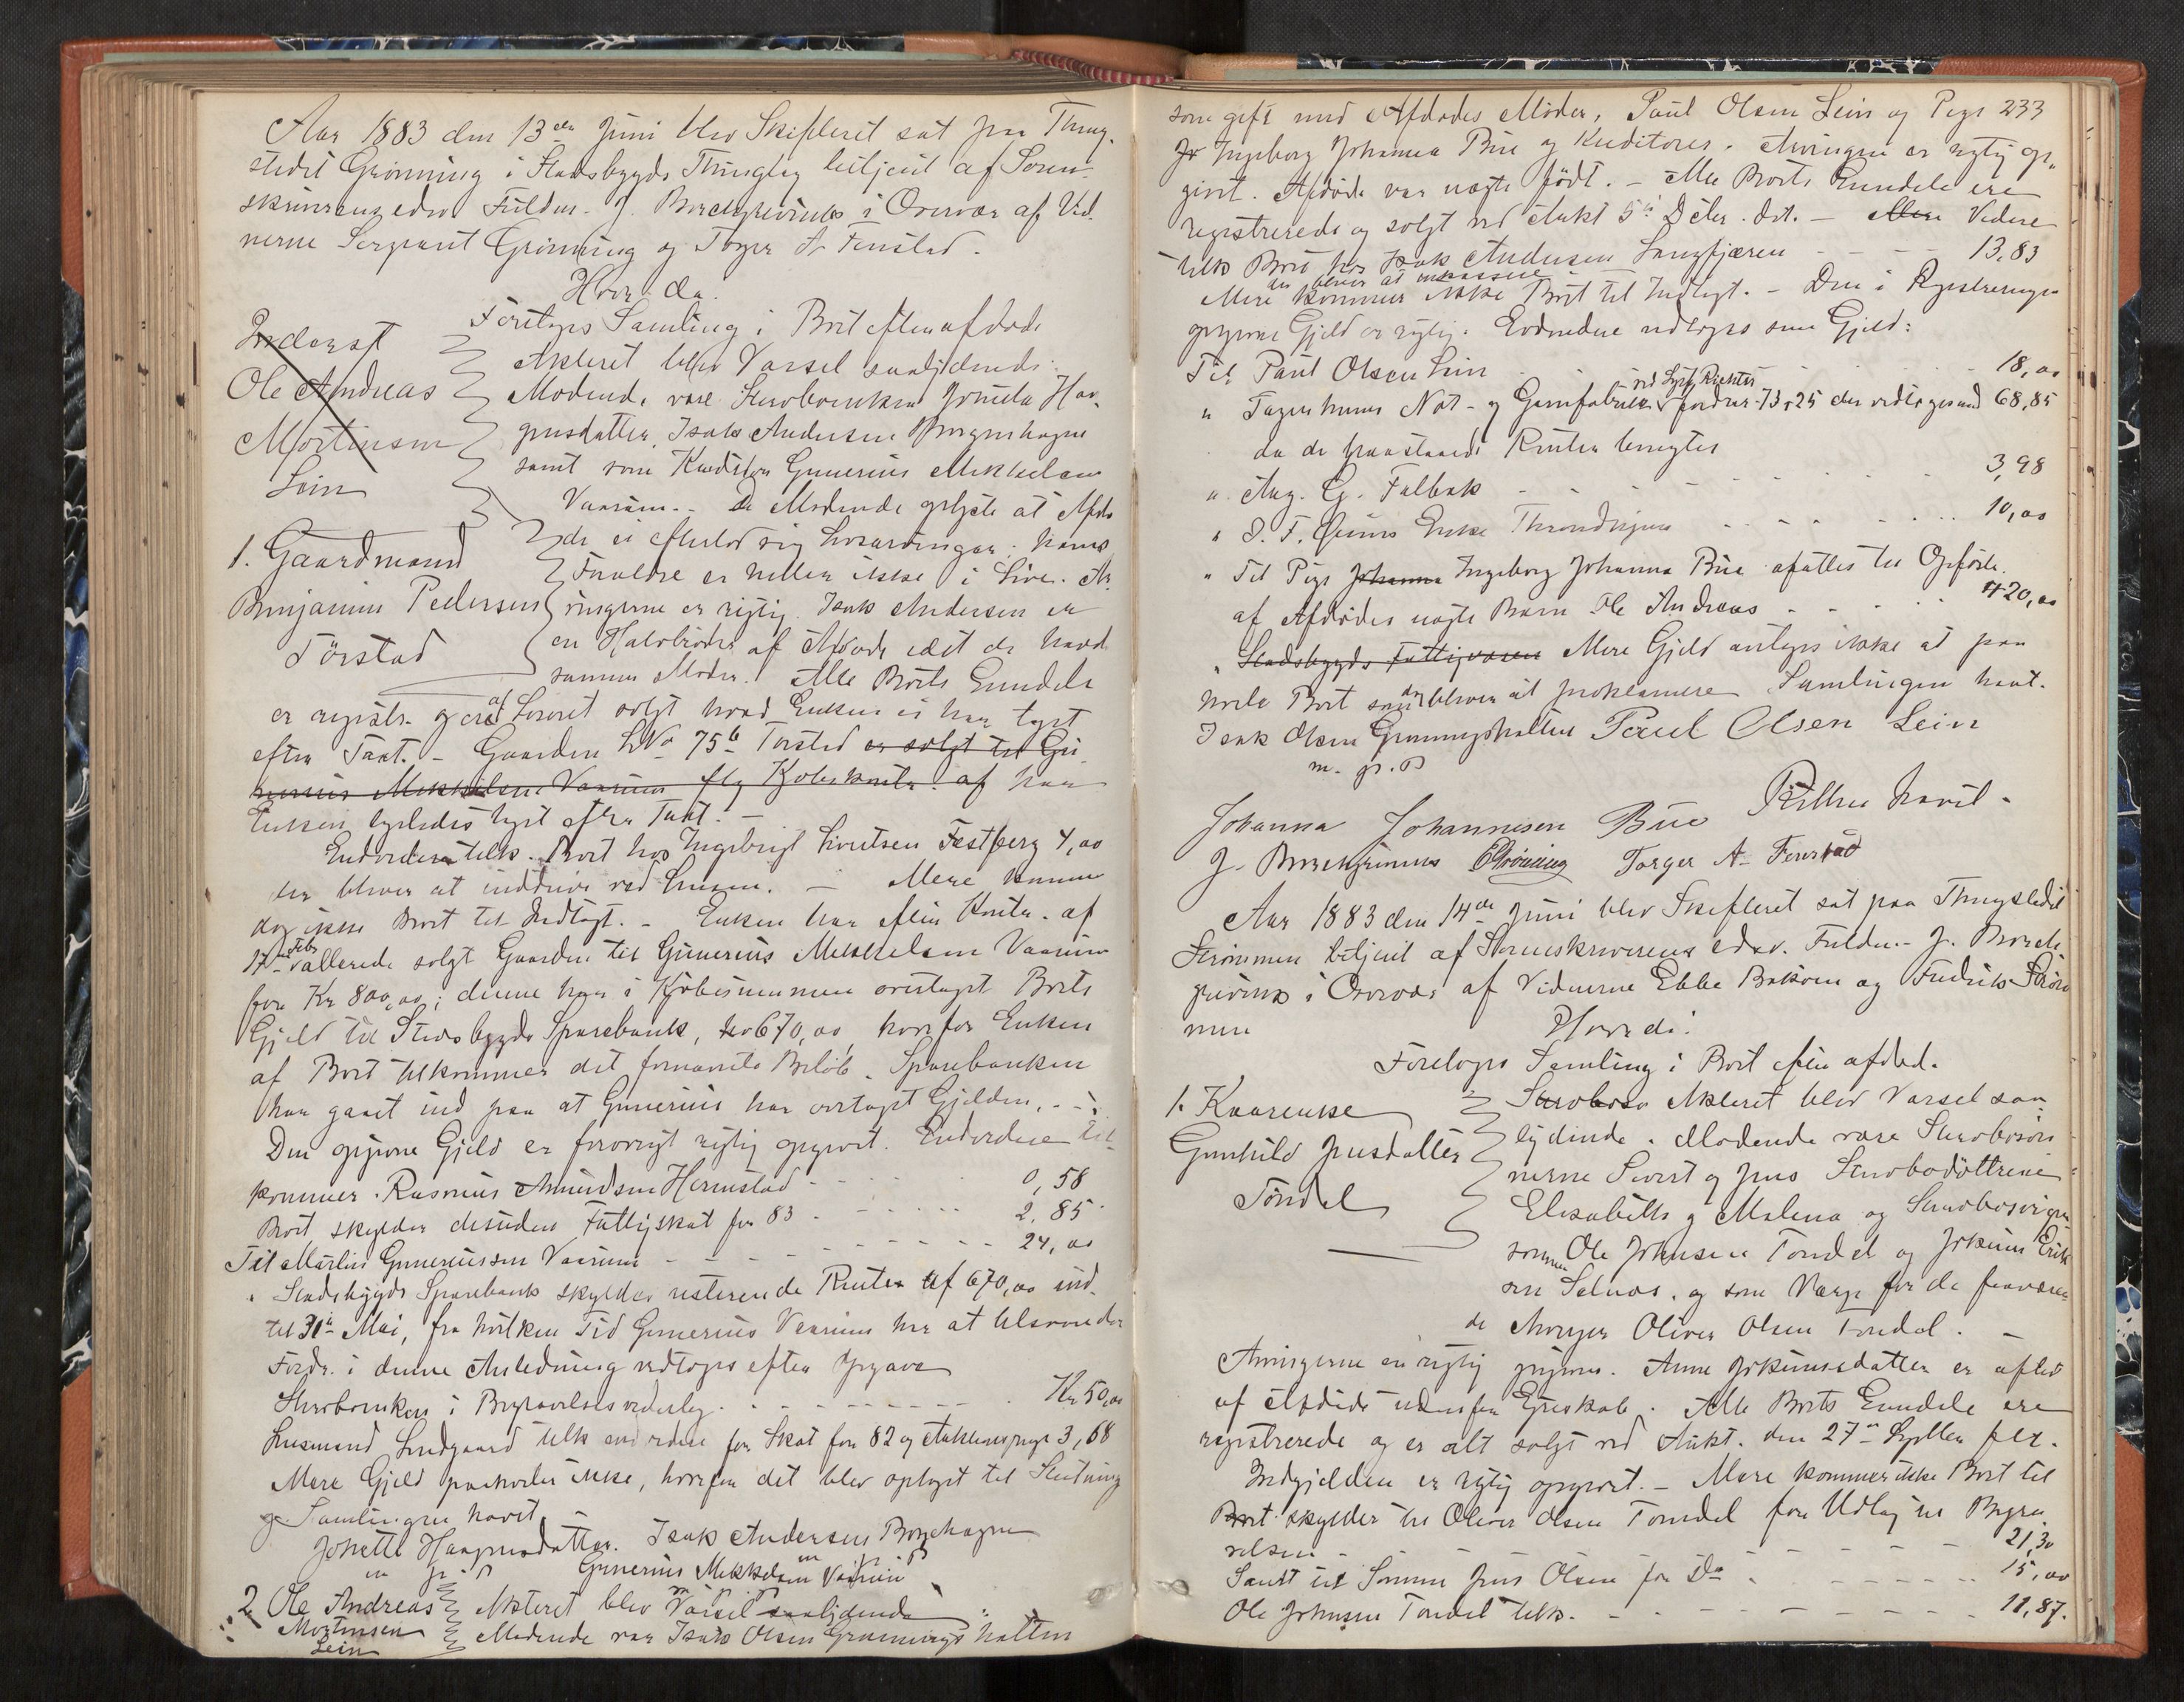 Aar 1883 den 13de Juni blev Skifteret sat paa Thing-
stedet Grönning i Stadsbygds Thinglag betjent af Soren-
skriverens edsv Fuldm. J. Borchgrevink i Overvær af Vid-
nerne Sergeant Grönning og Torger A. Fenstad.
Hvor da.
Foretoges Samling i Boet efter afdøde
Inderst
Ole Andreas
Mortinsen
Lein
1. Gaardmand
Benjamin Pedersen
Törstad
Akteret blev Varsel saalydende:
Mødende vare Stervboenken Jonetta Haa-
gensdatter, Isak Andersen Borgenhagen
samt som Kreditor Gunerius Mikkelsen
Vaarum. - De Mødende oplyste at Afdø-
de ei efterlod sig Livsarvinger; hans
Forældre er heller ikke i Live. Ar-
vingerne er rigtig. Isak Andersen er
en Halvbroder af Afdøde idet de havde
samme Moder. Alle Boets Eiendele
er registr. og er af Løsøret solgt hvad Enken ei har tagt
efter Taxt. - Gaarden LNo 75b Törstad er solgt til Gu-
nerius Mikkelsen Vaarum flg Købekontr. af har
Enken ligeledes tagt efter Taxt. -
Endvidere tilk. Boet hos Ingebrigt Sivertsen Fæstberg 4,00
der bliver at inddrive ved Enken. - Mere kommer
dog ikke Boet til Indtægt. - Enken har efter Kontr. af
17de Febr allerede solgt Gaarden til Gunerius Mikkelsen Vaarum
for Kr 800,00; denne har i Kjøbesummen overtaget Boets
Gjeld til Stadsbygds Sparebank, Kr 670,00, hvorfor Enken
af Boet tilkommer det fornævnte Beløb. Sparebanken
har gaaet ind paa at Gunerius har overtaget Gjelden. -
Den opgivne Gjeld er forøvrigt rigtig opgivet. Endvidere til-
kommer Rasmus Amundsen Hermstad 0,58
Boet skylder desuden Fattigskat for 83 2,85
Til Martin Guneriussen Vaarum 24,00
" Stadsbygds Sparebank skyldes resterende Renter af 670,00 ind-
til 31te Mai, fra hvilken Tid Gunerius Vaarum har at tilsvare den
Fordr. i denne Anledning vedtoges efter Opgave
Stervboenken i Begravelsesvederlag Kr 50,00
Lensmand Lundgaard tilk endvidere for Skat for 82 og Auktionspenge 3,68
Mere Gjeld paahviler ikke, hvorfor det blev optaget til Slutning
og Samlingen hævet.
Jonette Haagensdatter. Isak Andersen Borgenhagen
m. p. P Gunerius Mikkelsen Vaarum
m. p. P
2 Ole Andreas
Mortinsen
Lein
Akteret blev Varsel saalydende
Mødende var Isak Olsen Grønningshatten
som gift med Afdødes Moder, Paul Olsen Lein og Pige 233
Jo Ingeborg Johanna Bue og Kreditorer. Arvingen er rigtig op-
givet. Afdøde var uægte født. - Alle Boets Eiendele ere
registrerede og solgt ved Aukt 5te Dcbr. dst. - Mere Videre
tilk Boet hos Isak Andersen Langfjæren 13,83
der bliver at inkassere
Mere kommer ikke Boet til Indtægt. - Den i Registreringen
opgivne Gjeld er rigtig. Endvidere vedtoges som Gjeld:
Til Paul Olsen Lein 18,00
" Fagerheims Not- og Garnfabrik ved Sagf. Richter fordrer 73,25 der vedtoges med 68,85
da de paastaaede Renter benegtes
" Aug. G. Falbak 3,98
" I. F. Quins Enke Throndhjem 10,00
" Til Pige Johanna Ingeborg Johanna Bue afsattes til Opföde.
af Afdødes uægte Barn Ole Andreas 420,00
" Stadsbygds Fattigvæsen Mere Gjeld antoges ikke at paa
hvile Boet som der bliver at proklamere Samlingen hævt.
Isak Olsen Grønningshatten Paul Olsen Lein
m. p. P
Johanna Johannesen Bue Retten hævet.
J. Borchgrevink EGrönning Torger A. Fenstad
Aar 1883 den 14de Juni blev Skifteret sat paa Thingstedet
Strømmen betjent af Sorenskriverens edsv. Fuldm. J. Borch-
grevink i Overvær af Vidnerne Ebbe Bakøen og Fredrik Strøm
men Hvor da:
Foretoges Samling i Boet efter afdød.
1. Kaarenke
Gunhild Jensdatter
Töndel
Stervboso Akteret blev Varsel saa-
lydende. Mødende vare Stervbosøn-
nerne Sivert og Jens Stervbodöttrene
Elisabeth og Malena og Stervbosviger-
sønnen Ole Johnsen Töndel og Jokum Erik-
sen Selnæs, og som Værge for de fraværen-
de Arvinger Oliver Olsen Töndel. -
Arvingerne er rigtig opgivne. Anne Jokumsdatter er aflet
af Afdøde udenfor Egteskab. Alle Boets Eiendele ere
registrerede og er alt solgt ved Aukt. den 27de Septbr f.A.
Indgjelden er rigtig opgivet. - Mere kommer ikke Boet til
Boet skylder til Oliver Olsen Töndel for Udlæg til Begra-
velsen 21,30
Samt til Sønnen Jens Olsen for Do 15,00
Ole Johnsen Töndel tilk. 11,87.